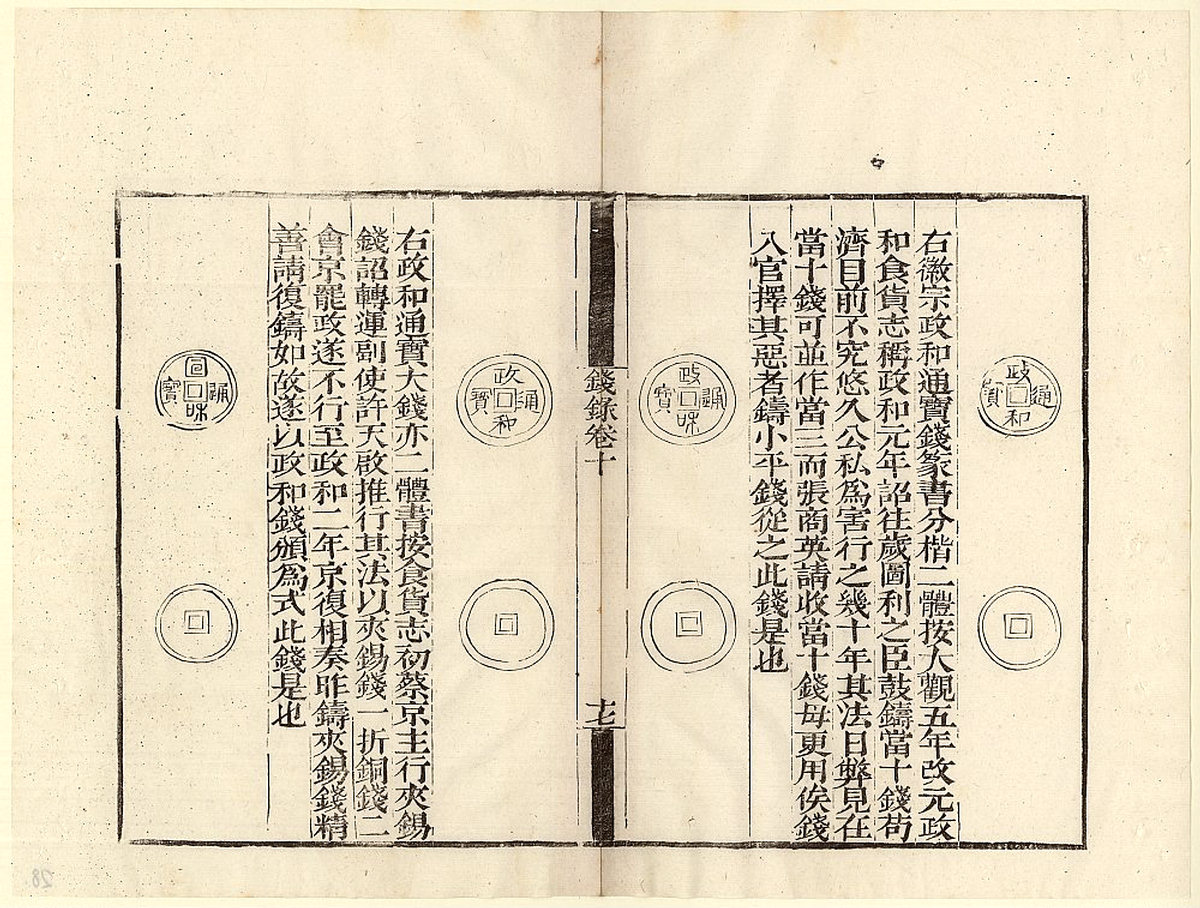 政通和寶
右徽宗政和通寶錢篆書分楷二體按大觀五年改元政
和食貨志稱政和元年詔往歲圖利之臣鼓鑄當十錢茍
濟目前不究悠久公私為害行之幾十年其法日弊見在
當十錢可並作當三而張商英請收當十錢毋更用俟錢
入官擇其惡者鑄小平錢從之此錢是也
政通和寶
錢錄卷十
十七
政通和寶
右政和通寶大錢亦二體書按食貨志初蔡京主行夾錫
錢詔轉運副使許天啟推行其法以夾錫錢一折銅錢二
會京罷政遂不行至政和二年京復相奏昨鑄夾錫錢精
善請復鑄如故遂以政和錢頒為式此錢是也
通和寶
28